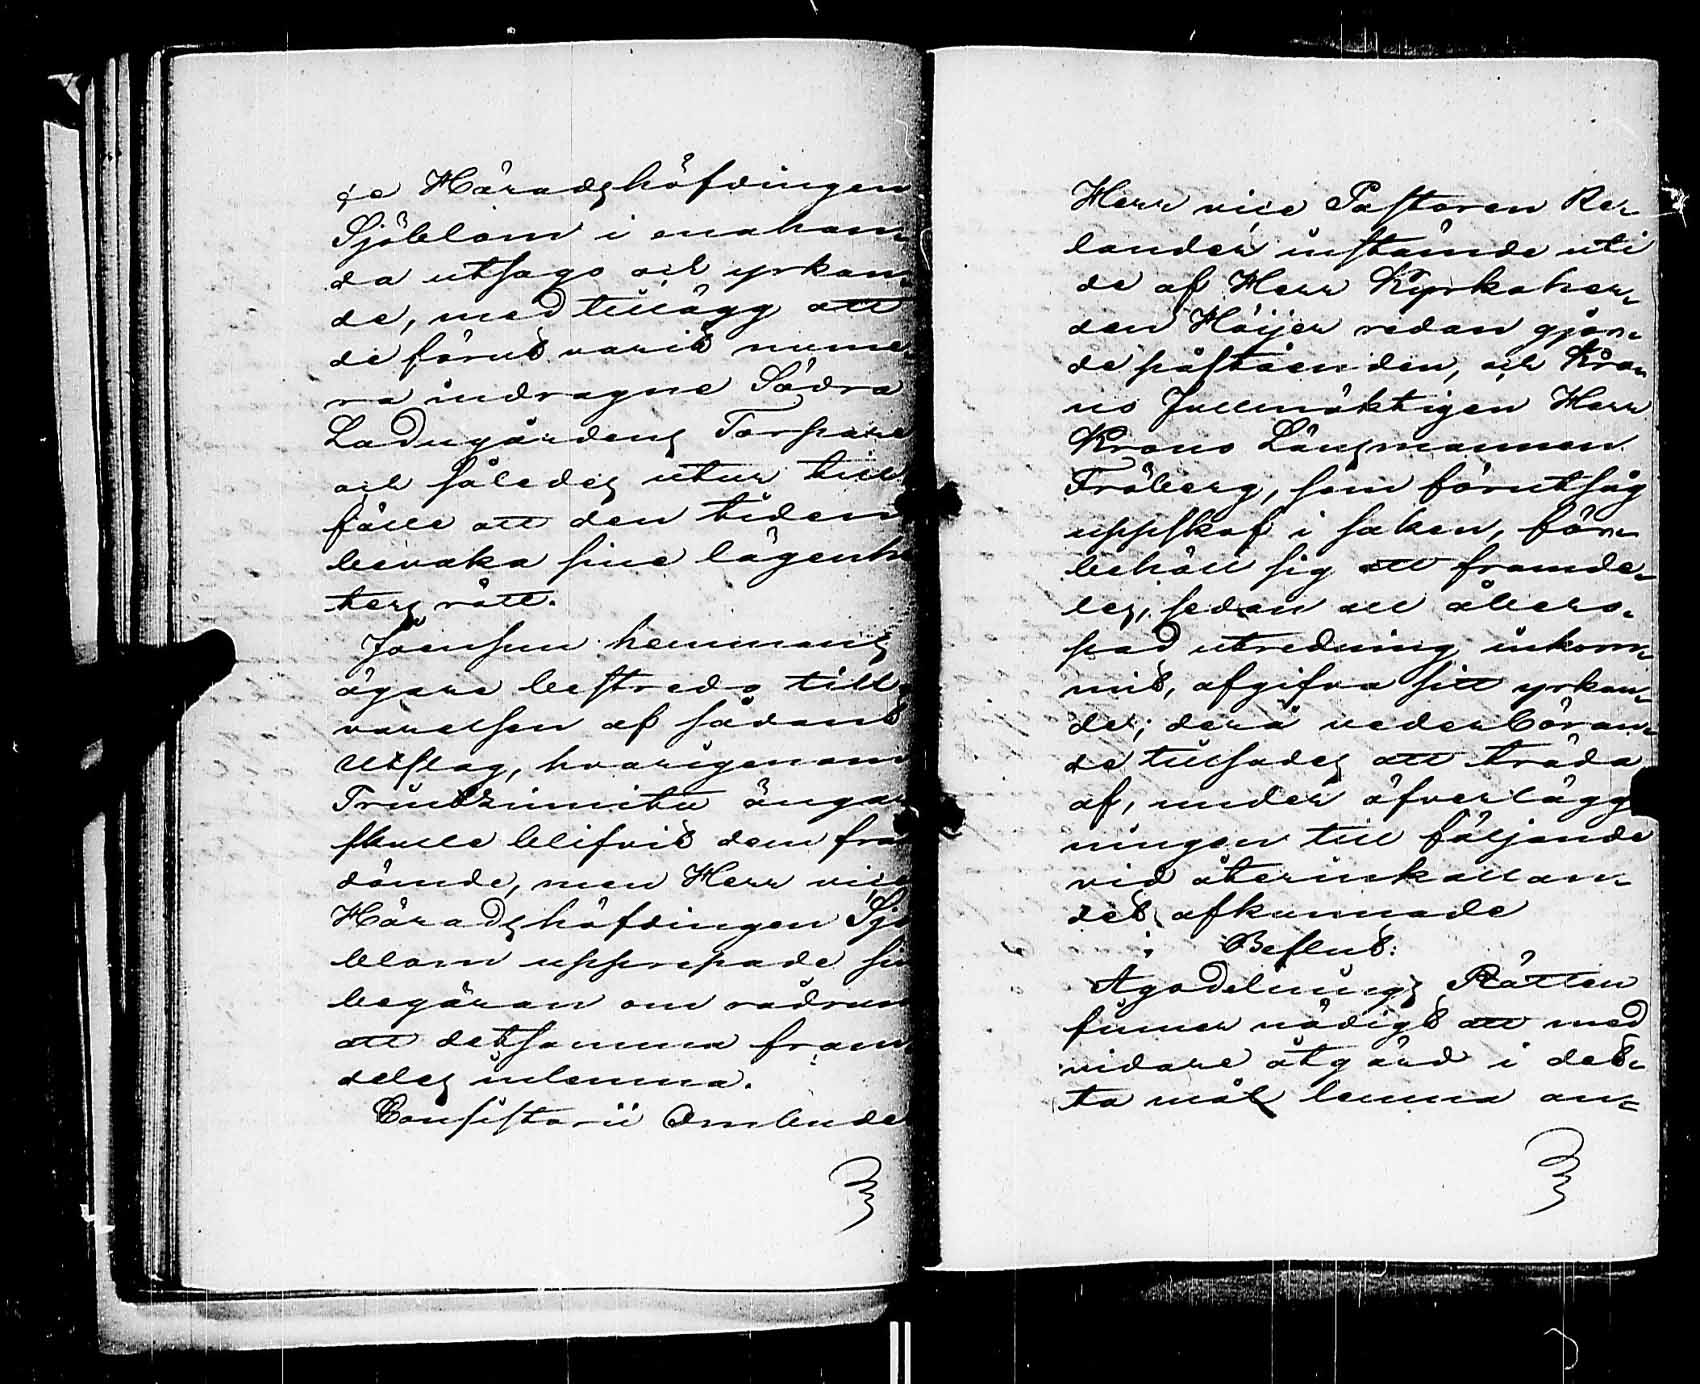 ce Häradshöfdingen
Sjöblom i enahan-
da utsago och yrkan-
de, med tillägg att
de förut varit nume-
ra indragne Södra
Ladugårdens Torpare
och således utur till
fälle att den tiden
bevaka sine lägenhe
ters rätt.
Joensuu hemmans
ägare bestredo till-
varelsen af sådant
Utslag, hvarigenom
ängar
skulle blifvit dem från
dömde, men Herr vice
Häradshöfdingen Sjö
blom upprepade sin
begäran om rådrum
att detsamma fram
deles inlemna.
Consistorii Ombude
Herr vice Pastoren Re-
lander instämde uti
de af Herr Kyrkoher-
den Höijer redan gjor-
de påståenden, och Kro-
no Fullmäktigen Herr
Krono Länsmannen
Fröberg, som förutsåg
uppskof i saken, för-
behöll sig att framde-
les, sedan all åbero-
pad utredning inkom-
mit, afgifva sitt yrkan-
de; derå vederböran-
de tillsades att träda
af, under öfverlägg
ningen till följande
vid återinkallan-
det afkunnade
Beslut:
Ägodelnings Rätten
finner nödigt att med
vidare åtgärd i det-
ta mål lemna an-